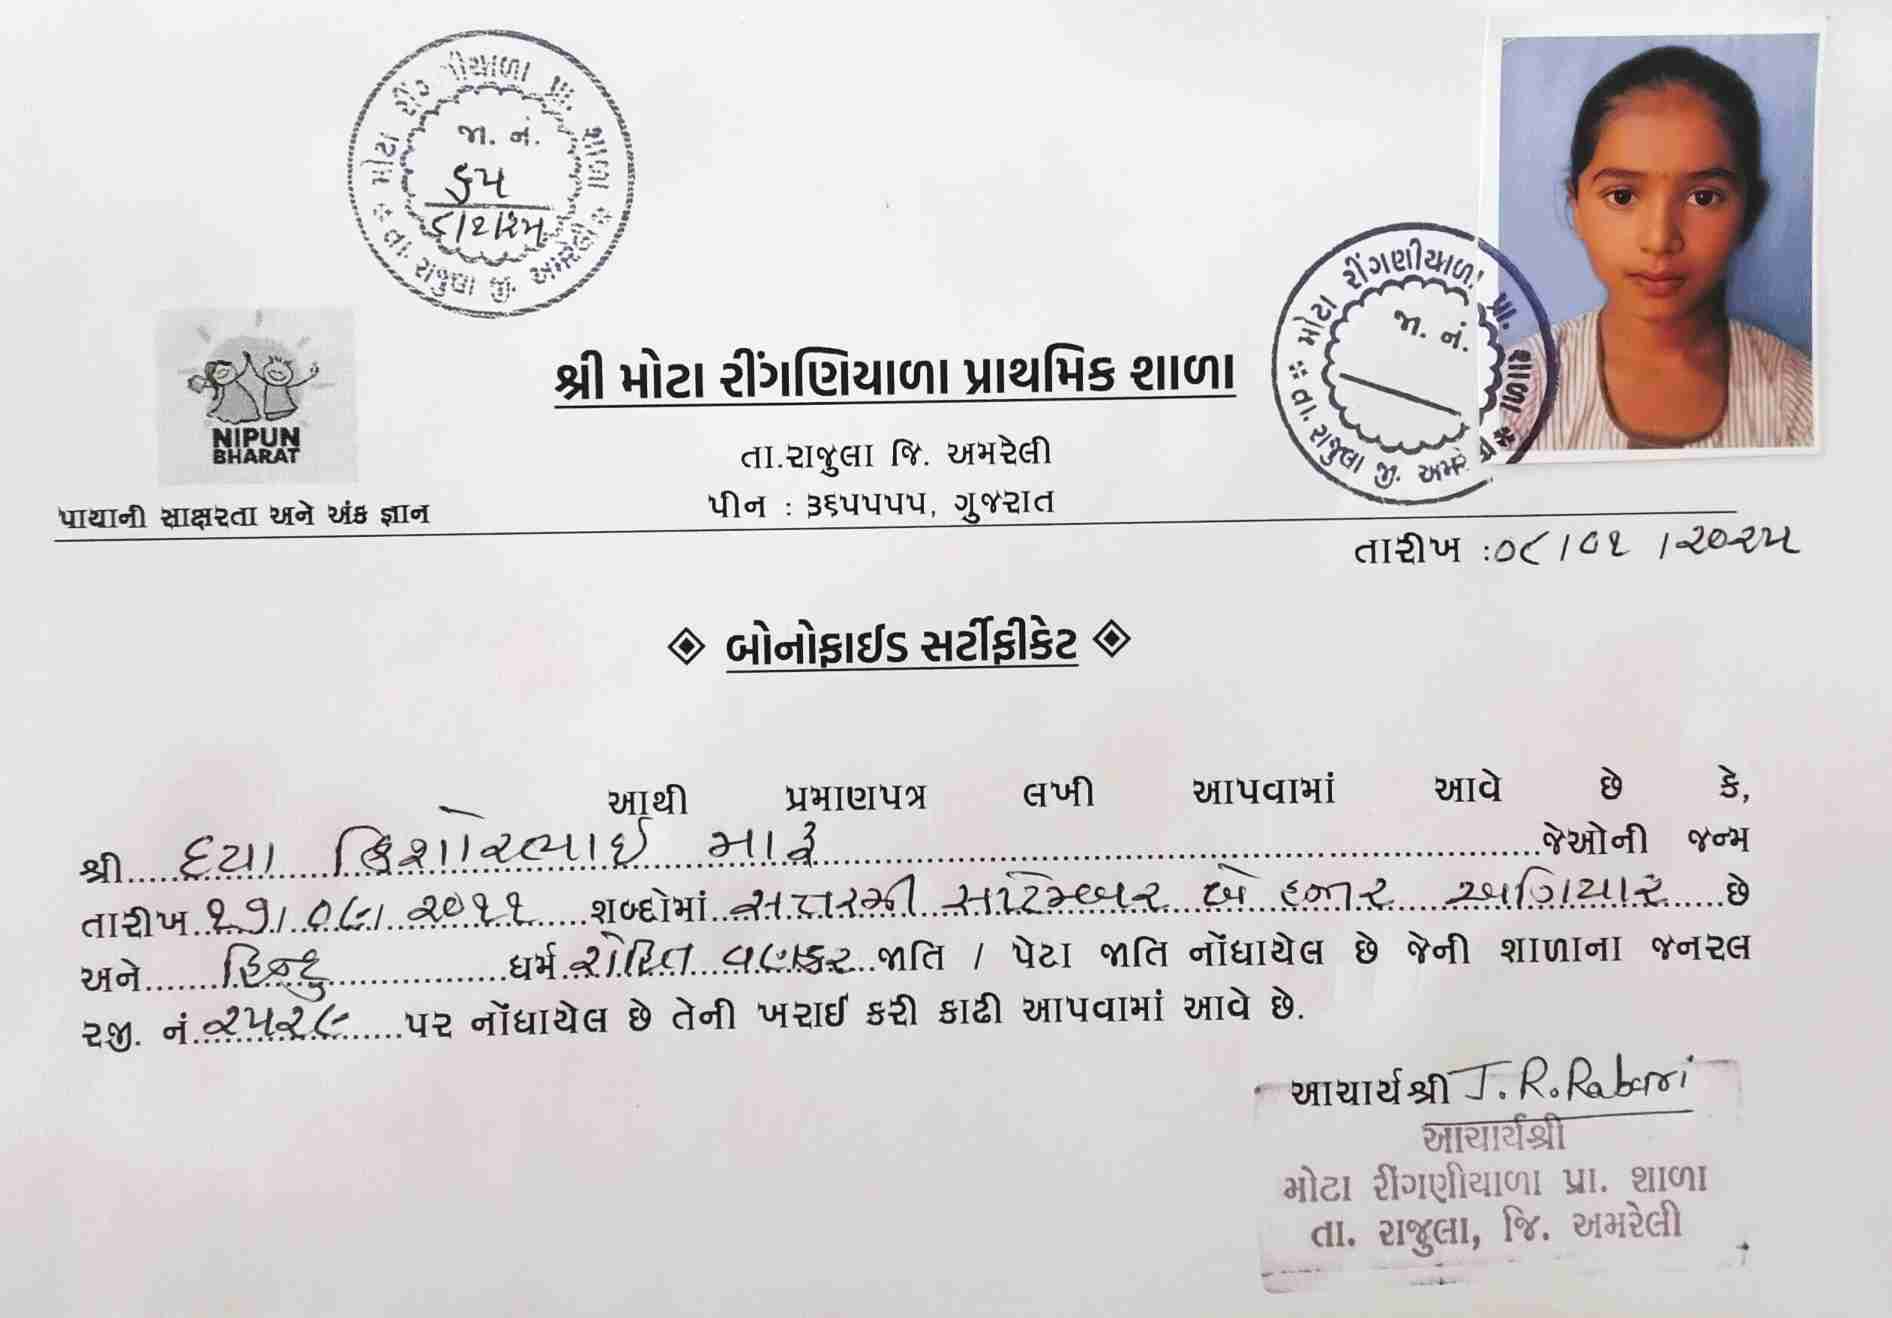 મોટા રીંગણીયાળા પ્રા. શાળા
જા. નં.
૬૫
૮/૧/૨૫
* તા. રાજુલા જી. અમરેલી *
મોટા રીંગણીયાળા પ્રા. શાળા
જા. નં.
* તા. રાજુલા જી. અમરે
NIPUN
BHARAT
શ્રી મોટા રીંગણિયાળા પ્રાથમિક શાળા
તા.રાજુલા જિ. અમરેલી
પાયાની સાક્ષરતા અને અંક જ્ઞાન
પીન : ૩૬૫૫૫૫, ગુજરાત
તારીખ :૦૮/૦૧/૨૦૨૫
બોનોફાઈડ સર્ટીફીકેટ
આથી પ્રમાણપત્ર લખી આપવામાં આવે છે કે,
શ્રી.....દયા કિશોરભાઈ મારૂ.....જેઓની જન્મ
તારીખ..૧૭/૦૯/૨૦૧૧.....શબ્દોમાં..સત્તરમી સપ્ટેમ્બર બે હજાર અગિયાર.....છે
અને.......હિન્દુ.......ધર્મ..રોહિત વણકર..જાતિ / પેટા જાતિ નોંધાયેલ છે જેની શાળાના જનરલ
રજી. નં.૨૫૨૯......પર નોંધાયેલ છે તેની ખરાઈ કરી કાઢી આપવામાં આવે છે.
આચાર્યશ્રી J.R.Rabari
આચાર્યશ્રી
મોટા રીંગણીયાળા પ્રા. શાળા
તા. રાજુલા, જિ. અમરેલી